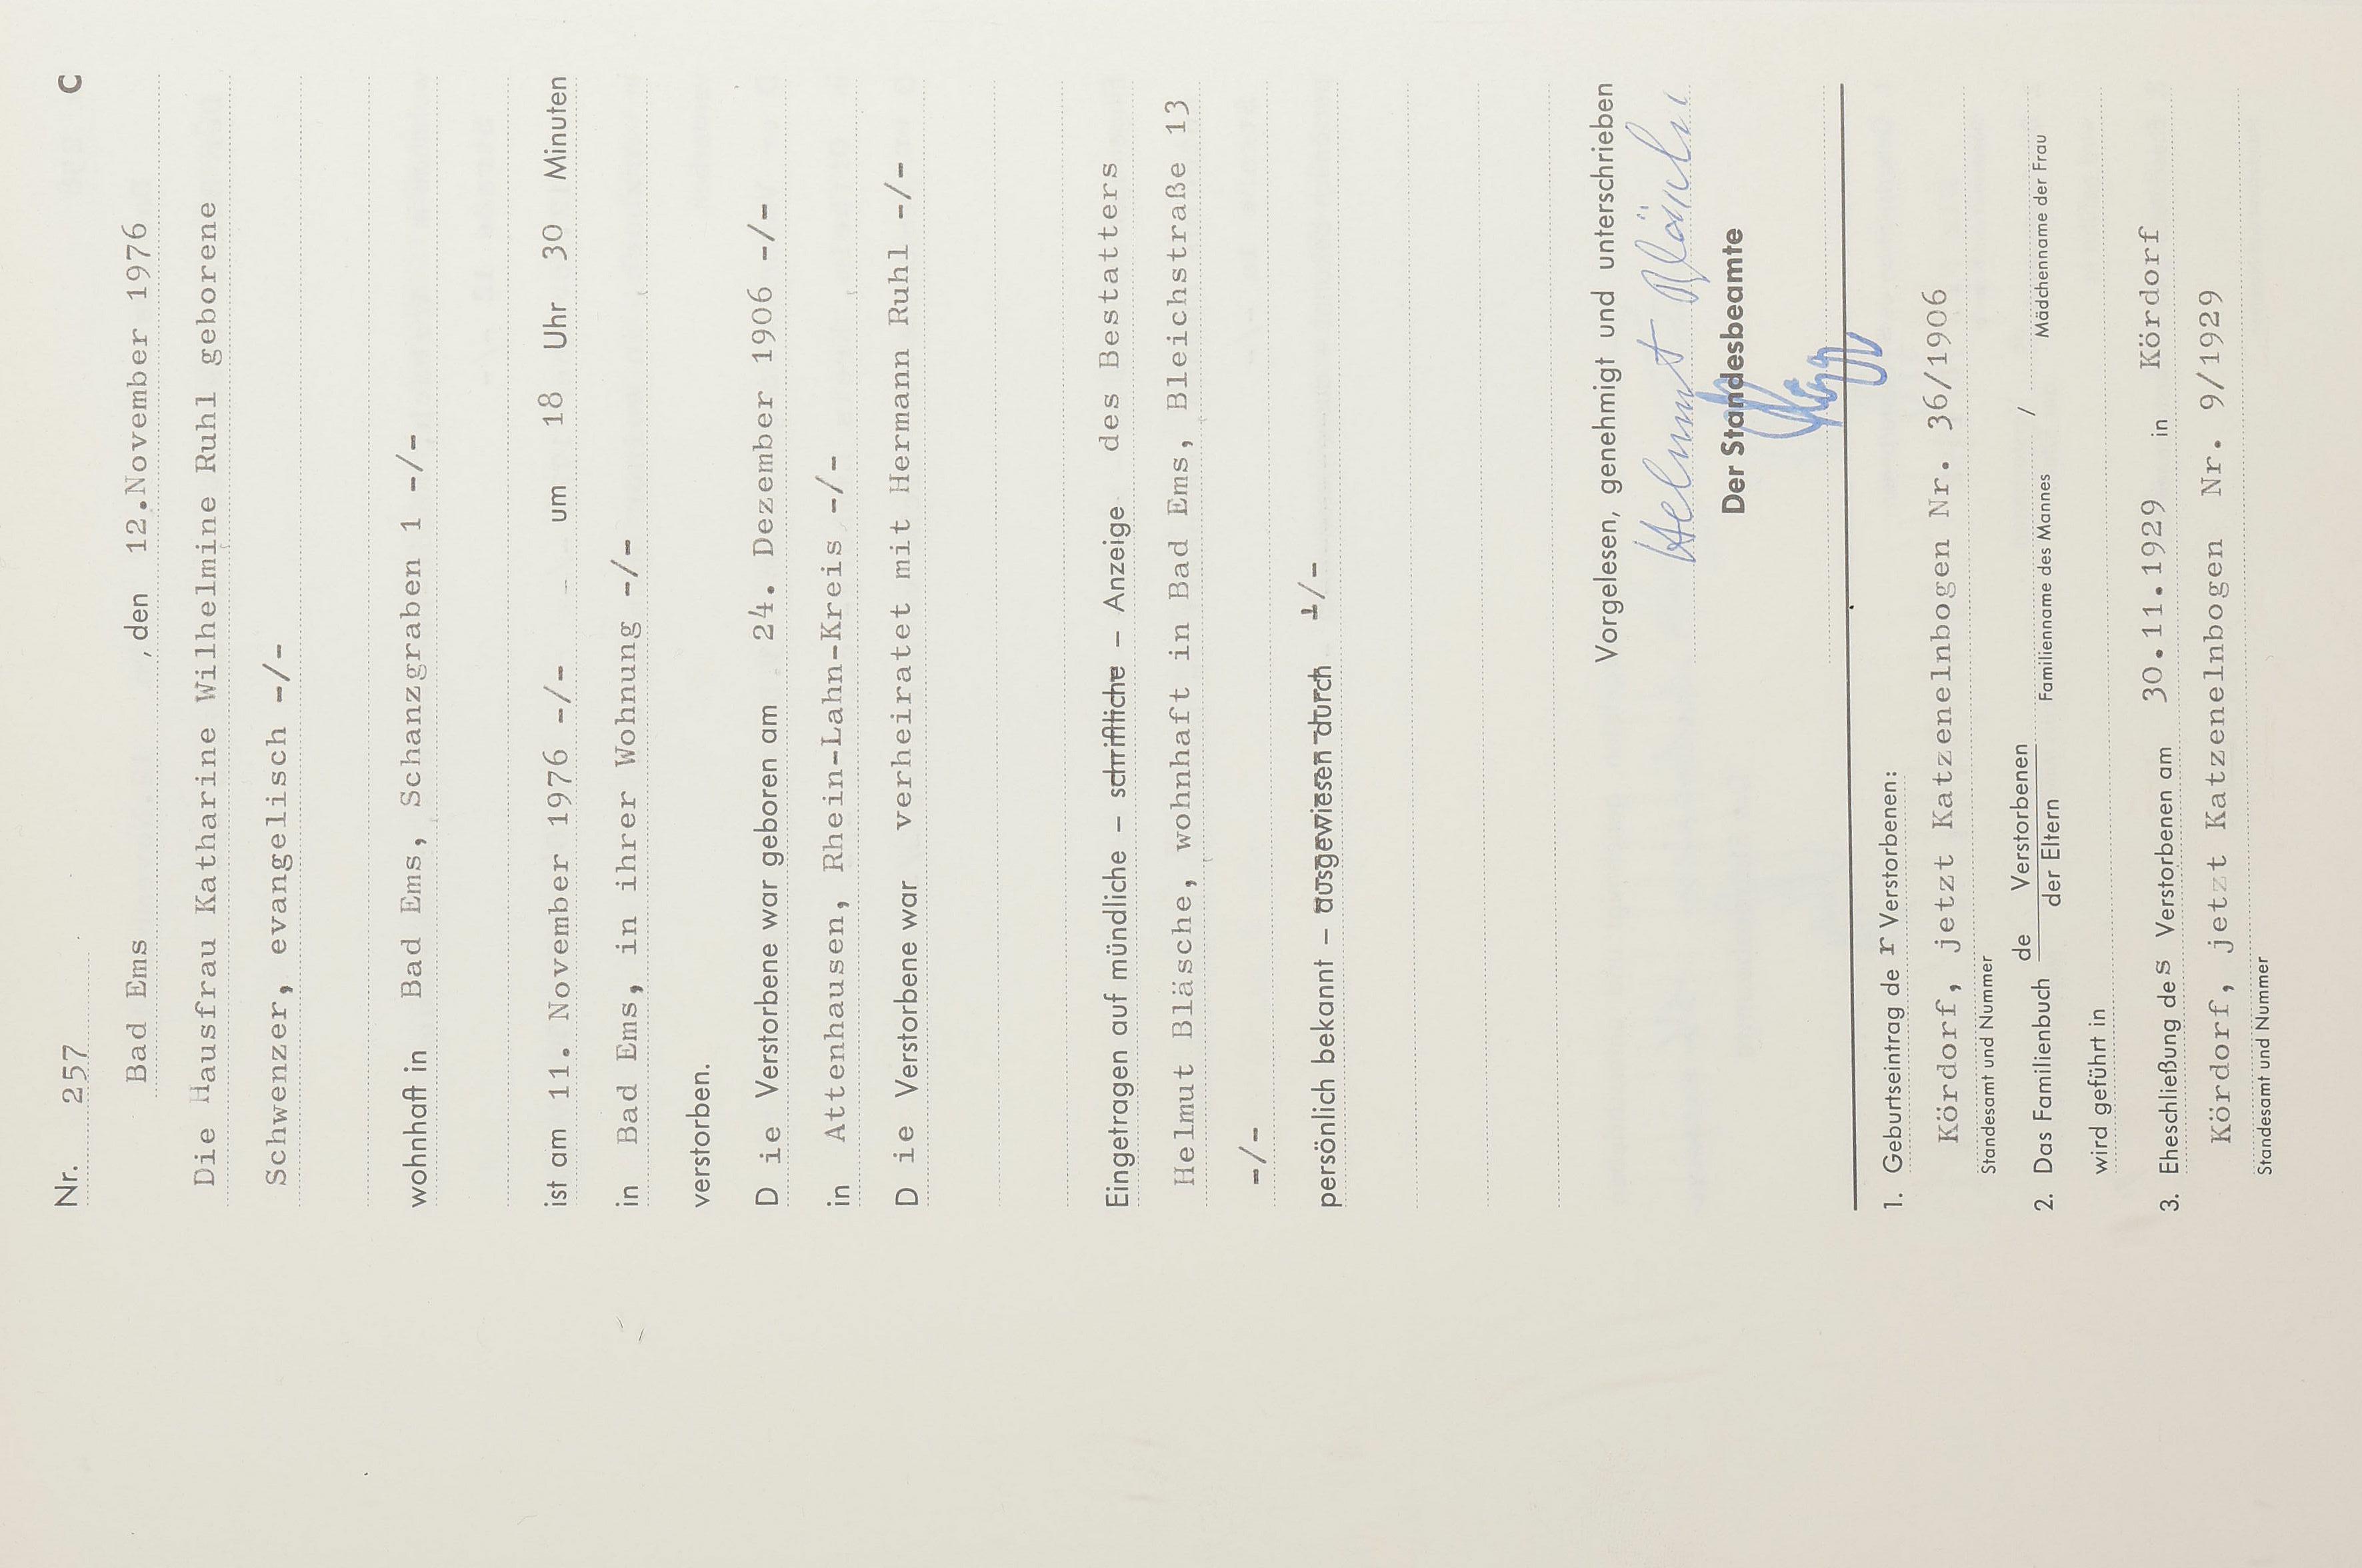 Nr. 257 C
Bad Ems , den 12.November 1976
Die Hausfrau Katharine Wilhelmine Ruhl geborene
Schwenzer, evangelisch -/-
wohnhaft in Bad Ems, Schanzgraben 1 -/-
ist am 11. November 1976 -/- um 18 Uhr 30 Minuten
in Bad Ems, in ihrer Wohnung -/-
verstorben.
D ie Verstorbene war geboren am 24. Dezember 1906 -/-
in Attenhausen, Rhein-Lahn-Kreis -/-
D ie Verstorbene war verheiratet mit Hermann Ruhl -/-
Eingetragen auf mündliche – schriftliche – Anzeige des Bestatters
Helmut Bläsche, wohnhaft in Bad Ems, Bleichstraße 13
-/-
persönlich bekannt – ausgewiesen durch -/-
Vorgelesen, genehmigt und unterschrieben
Helmut Bläsche
Der Standesbeamte
1. Geburtseintrag de r Verstorbenen:
Kördorf, jetzt Katzenelnbogen Nr. 36/1906
Standesamt und Nummer
2. Das Familienbuch de Verstorbenen / der Eltern
Familienname des Mannes / Mädchenname der Frau
wird geführt in
3. Eheschließung des Verstorbenen am 30.11.1929 in Kördorf
Kördorf, jetzt Katzenelnbogen Nr. 9/1929
Standesamt und Nummer